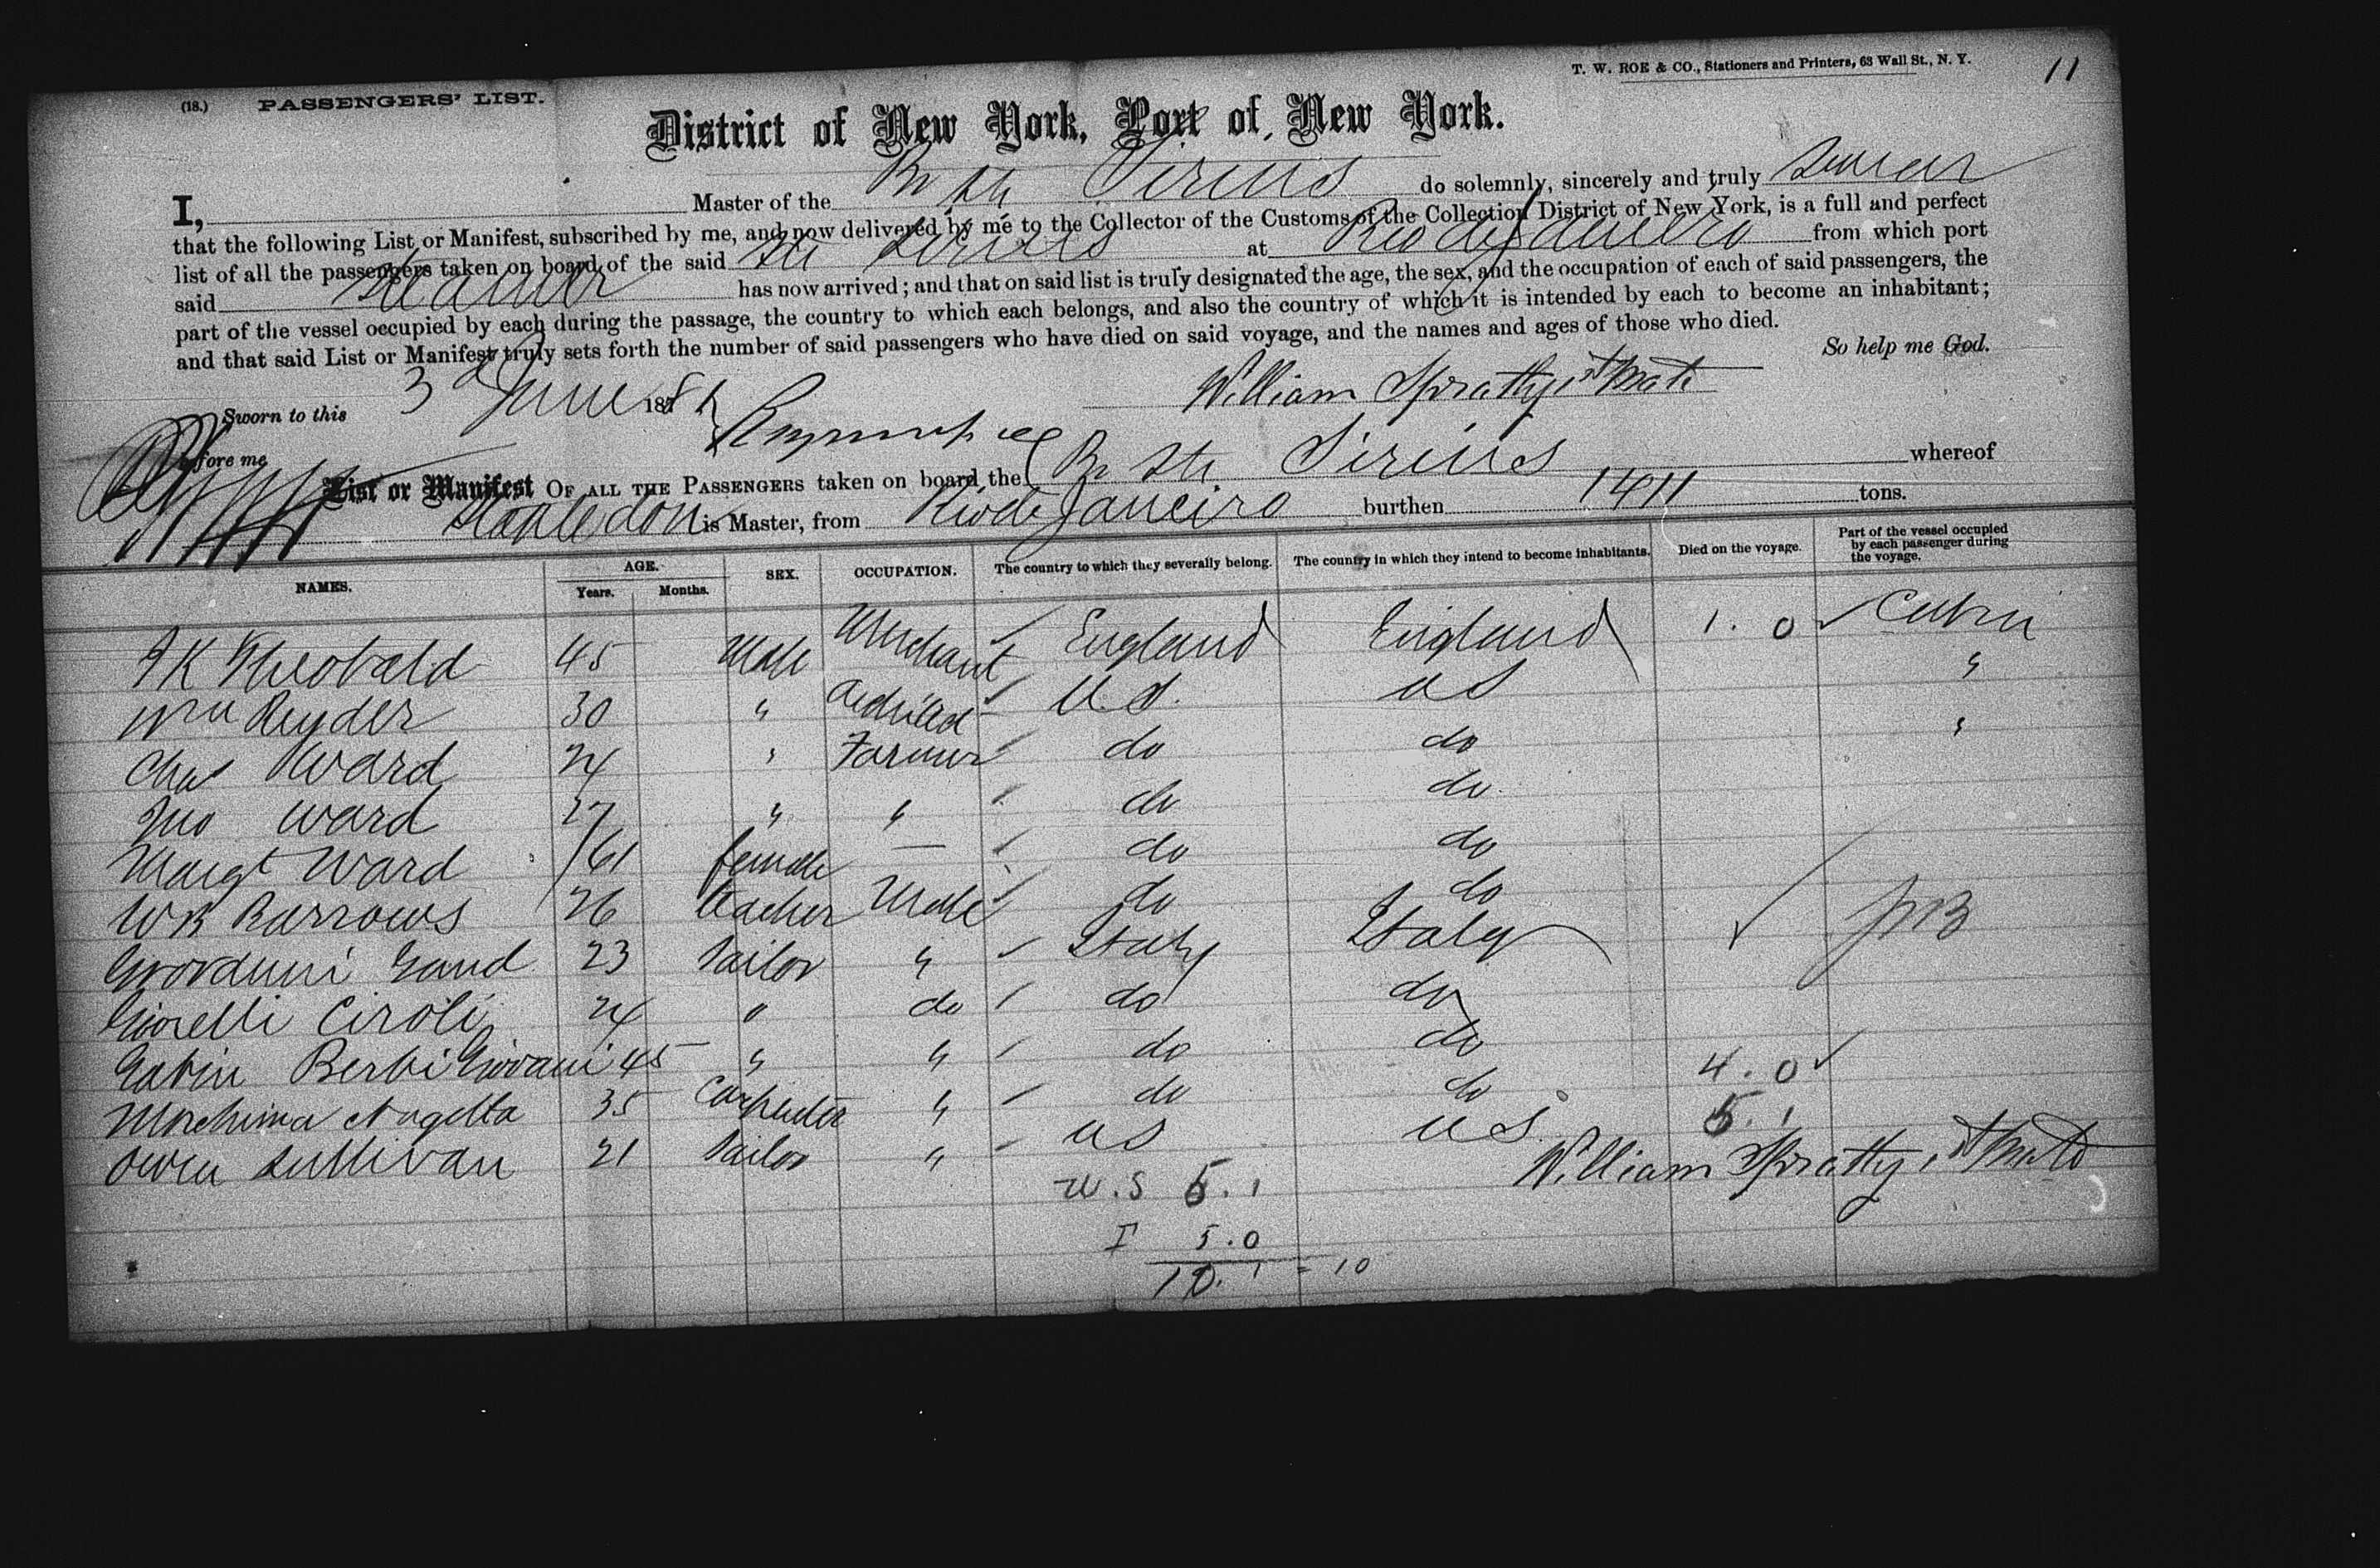 T. W. ROE & CO., Stationers and Printers, 63 Wall St., N. Y. 11
(18.) PASSENGERS' LIST.
District of New York, Port of New York.
I, Master of the Br Str Sirius do solemnly, sincerely and truly swear
that the following List or Manifest, subscribed by me, and now delivered by me to the Collector of the Customs of the Collection District of New York, is a full and perfect
list of all the passengers taken on board of the said Str Sirius at Rio de Janeiro from which port
said Steamer has now arrived; and that on said list is truly designated the age, the sex, and the occupation of each of said passengers, the
part of the vessel occupied by each during the passage, the country to which each belongs, and also the country of which it is intended by each to become an inhabitant;
and that said List or Manifest truly sets forth the number of said passengers who have died on said voyage, and the names and ages of those who died.
So help me God.
Sworn to this 3d June 1881 William Spratty 1st Mate
before me
List or Manifest OF ALL THE PASSENGERS taken on board the Br Str Sirius whereof
Stapledon is Master, from Rio de Janeiro burthen 1411 tons.
NAMES. AGE. Years. Months. SEX. OCCUPATION. The country to which they severally belong. The country in which they intend to become inhabitants. Died on the voyage. Part of the vessel occupied by each passenger during the voyage.
Theobald 45 Male Merchant England England 1. 0 Cabin
Wm Ryder 30 " U.S. US "
Chas Ward 24 " Farmer do do "
Jno Ward 27 " " do do
Margt Ward 61 female — do do
WB Barrows 26 teacher Male do do
Gand 23 Sailor " Italy Italy
Ciroli 24 " do do do
Berbi Giovani 45 " " do do 4. 0
35 Carpenter " do do 5. 1
Owen Sullivan 21 Sailor " US US William Spratty, 1st Mate
U.S 5. 1
I 5. 0
10. 1 = 10